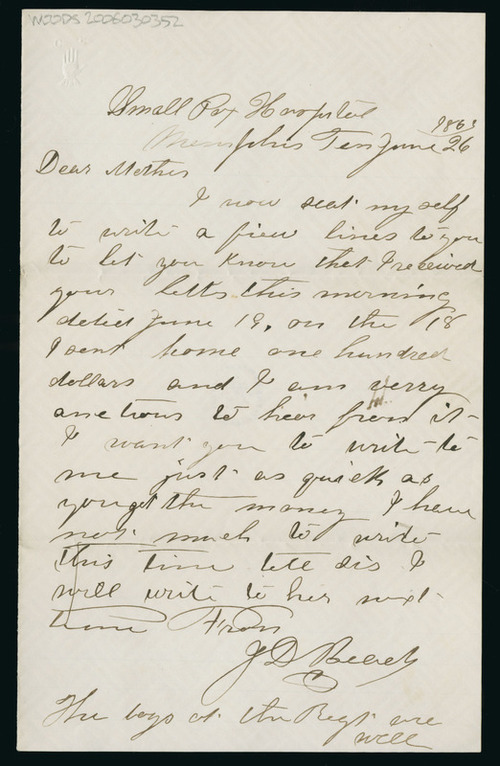 WOODS2006030352
Small Pox Hospital
Memphis Ten June 26
Dear Mother
I now seat my self
to write a fiew lines to you
to let you know that I received
your letts this morning
dated June 19, on the 18
I sent home one hundred
dollars and I am verry
anctious to hear from it
I want you to write to
me just as quick as
you get the money I have
not much to write
this time tell sis I
will write to her next
time From
J D Beech
The boys at the Regt are
well